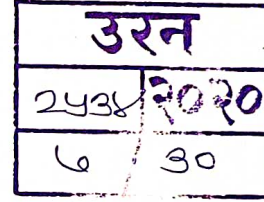 उरन
२५३४ २०२०
७ ३०